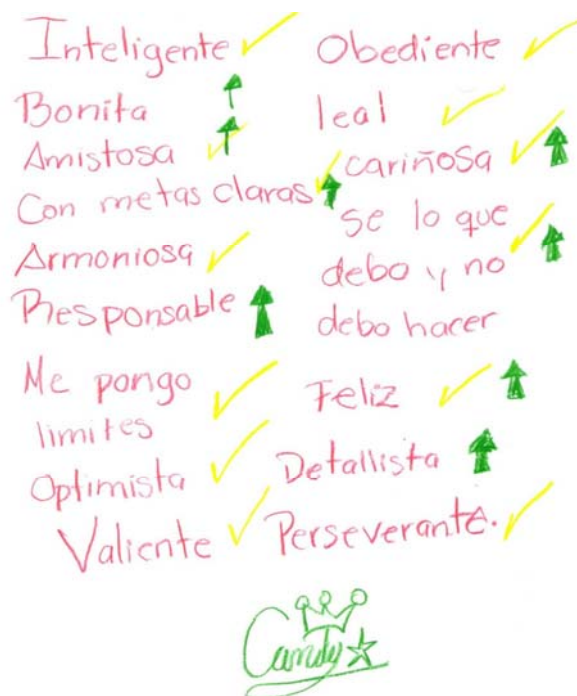 Inteligente
Bonita
Amistosa
Con metas claras
Armoniosa
Responsable
Me pongo
limites
Optimista
Valiente
Obediente
leal
cariñosa
se lo que
debo y no
debo hacer
Feliz
Detallista
Perseverante.
Candy